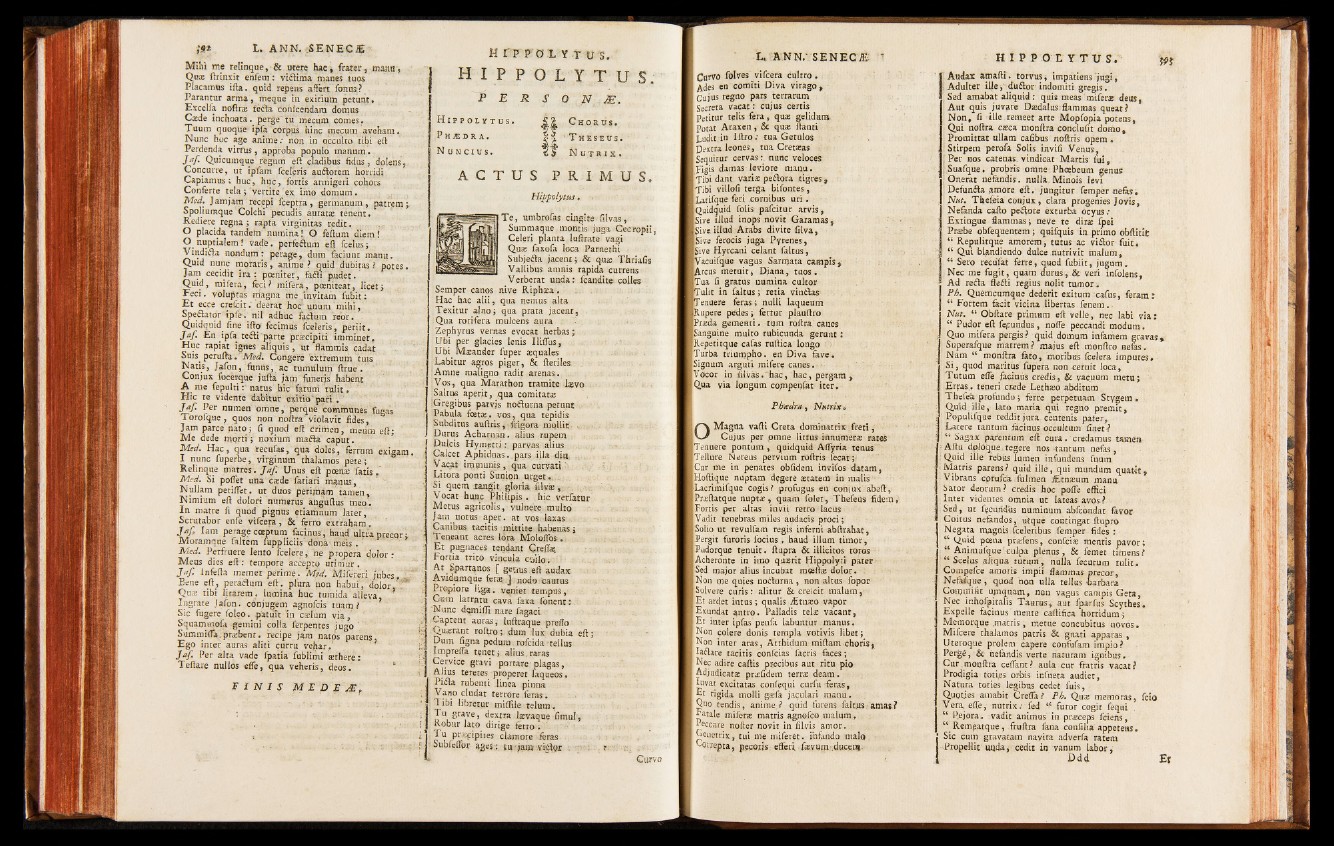 592 L. ANN. SENECÆ
Mihi me relinque, & utere hac, frater, manu,
Quæ ſtrinxit enſem: victima manes tuos
Placamus iſta. quid repens affert ſonus?
Parantur arma, meque in exitium petunt.
Excelſa noſtræ tecta conſcendam domus
Cæde inchoata. perge tu mecum comes.
Tuum quoque ipſa corpus hinc mecum aveham.
Nunc hoc age anime: non in occulto tibi eſt
Perdenda virtus, approba populo manum.
Jaſ. Quicumque regum eſt cladibus fidus, dolens,
Concurre, ut ipſam ſceleris auctorem horridi
Capiamus: huc, huc, fortis armigeri cohors
Conferte tela; vertite ex imo domum.
Med. Jamjam recepi ſceptra, germanum, patrem;
Spoliumque Colchi pecudis auratæ tenent.
Rediere regna; rapta virginitas redit.
O placida tandem numina! O feſtum diem!
O nuptialem! vade. perfectum eſt ſcelus;
Vindicta nondum: perage, dum faciunt manu.
Quid nunc moraris, anime? quid dubitas? potes.
Jam cecidit ira: pœnitet, facti pudet.
Quid, miſera, feci? miſera, pœniteat, licet;
Feci. voluptas magna me invitam ſubit:
Et ecce creſcit. deerat hoc unum mihi,
Spectator ipſe. nil adhuc factum reor.
Quidquid ſine iſto fecimus ſceleris, periit.
Jaſ. En ipſa tecti parte præcipiti imminet.
Huc rapiat ignes aliquis, ut flammis cadat
Suis peruſta. Med. Congere extremum tuis
Natis, Jaſon, funus, ac tumulum ſtrue.
Conjux ſocerque juſta jam functis habent
A me ſepulti: natus hic fatum tulit.
Hic te vidente dabitur exitio pari.
Jaſ. Per numen omne, perque communes fugas
Toroſque, quos non noſtra violavit fides,
Jam parce nato; ſi quod eſt crimen, meum eſt;
Me dede morti; noxium macta caput.
Med. Hac, qua recuſas, qua doles, ferrum exigam.
I nunc ſuperbe, virginum thalamos pete;
Relinque matres. Jaſ. Unus eſt pœnæ ſatis.
Med. Si poſſet una cæde ſatiari manus,
Nullam petiſſet. ut duos perimam tamen,
Nimium eſt dolori numerus anguſtus meo.
In matre ſi quod pignus etiamnum latet,
Scrutabor enſe viſcera, & ferro extraham.
Jaſ. Iam perage cœptum facinus, haud ultra precor;
Moramque ſaltem ſuppliciis dona meis.
Med. Perfruere lento ſcelere, ne propera dolor:
Meus dies eſt: tempore accepto utimur.
Jaſ. Infeſta memet perime. Med. Miſereri jubes.
Bene eſt, peractum eſt. plura non habui, dolor,
Quæ tibi litarem. lumina huc tumida alleva,
Ingrate Jaſon. conjugem agnoſcis tuam?
Sic fugere ſoleo. patuit in cælum via,
Squamoſa gemini colla ſerpentes jugo
Summiſſa præbent. recipe jam natos parens,
Ego inter auras aliti curru vehar.
Jaſ. Per alta vade ſpatia ſublimi æthere:
Teſtare nullos eſſe, qua veheris, deos.
FINIS MEDEÆ.
HIPPOLYTUS.
HIPPOLYTUS.
PERSONÆ.
HIPPOLYTUS. CHORUS.
PHÆDRA. THESEUS.
NUNCIUS. NUTRIX.
ACTUS PRIMUS.
Hippolytus.
Ite, umbroſas cingite ſilvas,
Summaque montis juga Cecropii,
Celeri planta luſtrate vagi
Quæ ſaxoſa loca Parnethi
Subjecta jacent; & quæ Thriaſis
Vallibus amnis rapida currens
Verberat unda: ſcandite colles
Semper canos nive Riphæa.
Hac hac alii, qua nemus alta
Texitur alno; qua prata jacent,
Qua rorifera mulcens aura
Zephyrus vernas evocat herbas;
Ubi per glacies lenis Iliſſus,
Ubi Mæander ſuper æquales
Labitur agros piger, & ſteriles
Amne maligno radit arenas.
Vos, qua Marathon tramite lævo
Saltus aperit, qua comitatæ
Gregibus parvis nocturna petunt
Pabula fœtæ. vos, qua tepidis
Subditus auſtris, frigora mollit
Durus Acharnan. alius rupem
Dulcis Hymetti: parvas alius
Calcet Aphidnas. pars illa diu
Vacat immunis, qua curvati
Litora ponti Sunion urget.
Si quem tangit gloria ſilvæ,
Vocat hunc Philipis. hic verſatur
Metus agricolis, vulnere multo
Jam notus aper. at vos laxas
Canibus tacitis mittite habenas;
Teneant acres lora Moloſſos.
Et pugnaces tendant Creſſæ
Fortia trito vincula collo.
At Spartanos [ genus eſt audax
Avidumque feræ ] nodo cautus
Propiore liga. veniet tempus,
Cum latratu cava ſaxa ſonent:
Nunc demiſſi nare ſagaci
Captent auras, luſtraque preſſo
Quærant roſtro; dum lux dubia eſt;
Dum ſigna pedum roſcida tellus
Impreſſa tenet; alius raras
Cervice gravi portare plagas,
Alius teretes properet laqueos.
Picta rubenti linea pinna
Vano cludat terrore feras.
Tibi libretur miſſile telum.
Tu grave, dextra lævaque ſimul,
Robur lato dirige ferro.
Tu præcipites clamore feras
Subſeſſor ages: tu jam victor
Curvo
L. ANN. SENECÆ
Curvo ſolves viſcera cultro.
Ades en comiti Diva virago,
Cujus regno pars terrarum
Secreta vacat: cujus certis
Petitur telis fera, quæ gelidum
Potat Araxen, & quæ ſtanti
Ludit in Iſtro: tua Getulos
Dextra leones, tua Cretæas
Sequitur cervas: nunc veloces
Figis damas leviore manu.
Tibi dant variæ pectora tigres,
Tibi villoſi terga biſontes,
Latiſque feri cornibus uri.
Quidquid ſolis paſcitur arvis,
Sive illud inops novit Garamas,
Sive illud Arabs divite ſilva,
Sive ferocis juga Pyrenes,
Sive Hyrcani celant ſaltus,
Vacuiſque vagus Sarmata campis,
Arcus metuit, Diana, tuos.
Tua ſi gratus numina cultor
Tulit in ſaltus; retia vinctas
Tenuere feras; nulli laqueum
Rupere pedes; fertur plauſtro
Præda gementi. tum roſtra canes
Sanguine multo rubicunda gerunt:
Repetitque caſas ruſtica longo
Turba triumpho. en Diva fave.
Signum arguti miſere canes.
Vocor in ſilvas. hac, hac, pergam,
Qua via longum compenſat iter.
Phædra, Nutrix.
O Magna vaſti Creta dominatrix freti,
Cujus per omne littus innumeræ rates
Tenuere pontum, quidquid Aſſyria tenus
Tellure Nereus pervium roſtris ſecat;
Cur me in penates obſidem inviſos datam,
Hoſtique nuptam degere ætatem in malis
Lacrimiſque cogis? profugus en conjux abeſt,
Præſtatque nuptæ, quam ſolet, Theſeus fidem.
Fortis per altas invii retro lacus
Vadit tenebras miles audacis proci;
Solio ut revulſam regis inferni abſtrahat,
Pergit furoris ſocius, haud illum timor,
Pudorque tenuit. ſtupra & illicitos toros
Acheronte in imo quærit Hippolyti pater
Sed major alius incubat mœſtæ dolor.
Non me quies nocturna, non altus ſopor
Solvere curis: alitur & creſcit malum,
Et ardet intus; qualis Ætnæo vapor
Exundat antro. Palladis telæ vacant,
Et inter ipſas penſa labuntur manus.
Non colere donis templa votivis libet;
Non inter aras, Atthidum miſtam choris,
Jactare tacitis conſcias ſacris faces;
Nec adire caſtis precibus aut ritu pio
Adjudicatæ præſidem terræ deam.
Juvat excitatas conſequi curſu feras,
Et rigida molli gæſa jaculari manu.
Quo tendis, anime? quid furens ſaltus amas?
Fatale miſeræ matris agnoſco malum.
Peccare noſter novit in ſilvis amor.
Genetrix, tui me miſeret. infando malo
Correpta, pecoris efferi ſævum ducem
HIPPOLYTUS. 593
Audax amaſti. torvus, impatiens jugi,
Adulter ille, ductor indomiti gregis.
Sed amabat aliquid: quis meas miſeræ deus,
Aut quis juvare Dædalus flammas queat?
Non, ſi ille remeet arte Mopſopia potens,
Qui noſtra cæca monſtra concluſit domo,
Promittat ullam caſibus noſtris opem.
Stirpem peroſa Solis inviſi Venus,
Per nos catenas vindicat Martis ſui,
Suaſque. probris omne Phœbeum genus
Onerat nefandis. nulla Minois levi
Defuncta amore eſt. jungitur ſemper nefas.
Nut. Theſeia conjux, clara progenies Jovis,
Nefanda caſto pectore exturba ocyus:
Extingue flammas; neve te diræ ſpei
Præbe obſequentem; quiſquis in primo obſtitit
“ Repulitque amorem, tutus ac victor fuit.
“ Qui blandiendo dulce nutrivit malum,
“ Sero recuſat ferre, quod ſubiit, jugum.
Nec me fugit, quam durus, & veri inſolens,
Ad recta flecti regius nolit tumor.
Ph. Quemcumque dederit exitum caſus, feram:
“ Fortem facit vicina libertas ſenem.
Nut. “ Obſtare primum eſt velle, nec labi via:
“ Pudor eſt ſecundus, noſſe peccandi modum.
Quo miſera pergis? quid domum infamem gravas,
Superaſque matrem? majus eſt monſtro nefas.
Nam “ monſtra fato, moribus ſcelera imputes.
Si, quod maritus ſupera non cernit loca,
Tutum eſſe facinus credis, & vacuum metu;
Erras. teneri crede Lethæo abditum
Theſea profundo; ferre perpetuam Stygem.
Quid ille, lato maria qui regno premit,
Populiſque reddit jura centenis pater,
Latere tantum facinus occultum ſinet?
“ Sagax parentum eſt cura. credamus tamen
Aſtu doloque tegere nos tantum nefas,
Quid ille rebus lumen infundens ſuum
Matris parens? quid ille, qui mundum quatit,
Vibrans coruſca fulmen Ætnæum manu
Sator deorum? credis hoc poſſe effici
Inter videntes omnia ut lateas avos?
Sed, ut ſecundus numinum abſcondat favor
Coitus nefandos, utque contingat ſtupro
Negata magnis ſceleribus ſemper fides:
“ Quid pœna præſens, conſciæ mentis pavor;
“ Animuſque culpa plenus, & ſemet timens?
“ Scelus aliqua tutum, nulla ſecurum tulit.
Compeſce amoris impii flammas precor,
Nefaſque, quod non ulla tellus barbara
Commiſit unquam, non vagus campis Geta,
Nec inhoſpitalis Taurus, aut ſparſus Scythes.
Expelle facinus mente caſtifica horridum;
Memorque matris, metue concubitus novos.
Miſcere thalamos patris & gnati apparas,
Uteroque prolem capere confuſam impio?
Perge, & nefandis verte naturam ignibus.
Cur monſtra ceſſant? aula cur fratris vacat?
Prodigia toties orbis inſueta audiet,
Natura toties legibus cedet ſuis,
Quoties amabit Creſſa? Ph. Quæ memoras, ſcio
Vera eſſe, nutrix: ſed “ furor cogit ſequi
“ Pejora. vadit animus in præceps ſciens,
“ Remeatque, fruſtra ſana conſilia appetens.
Sic cum gravatam navita adverſa ratem
Propellit unda, cedit in vanum labor,
Ddd Et